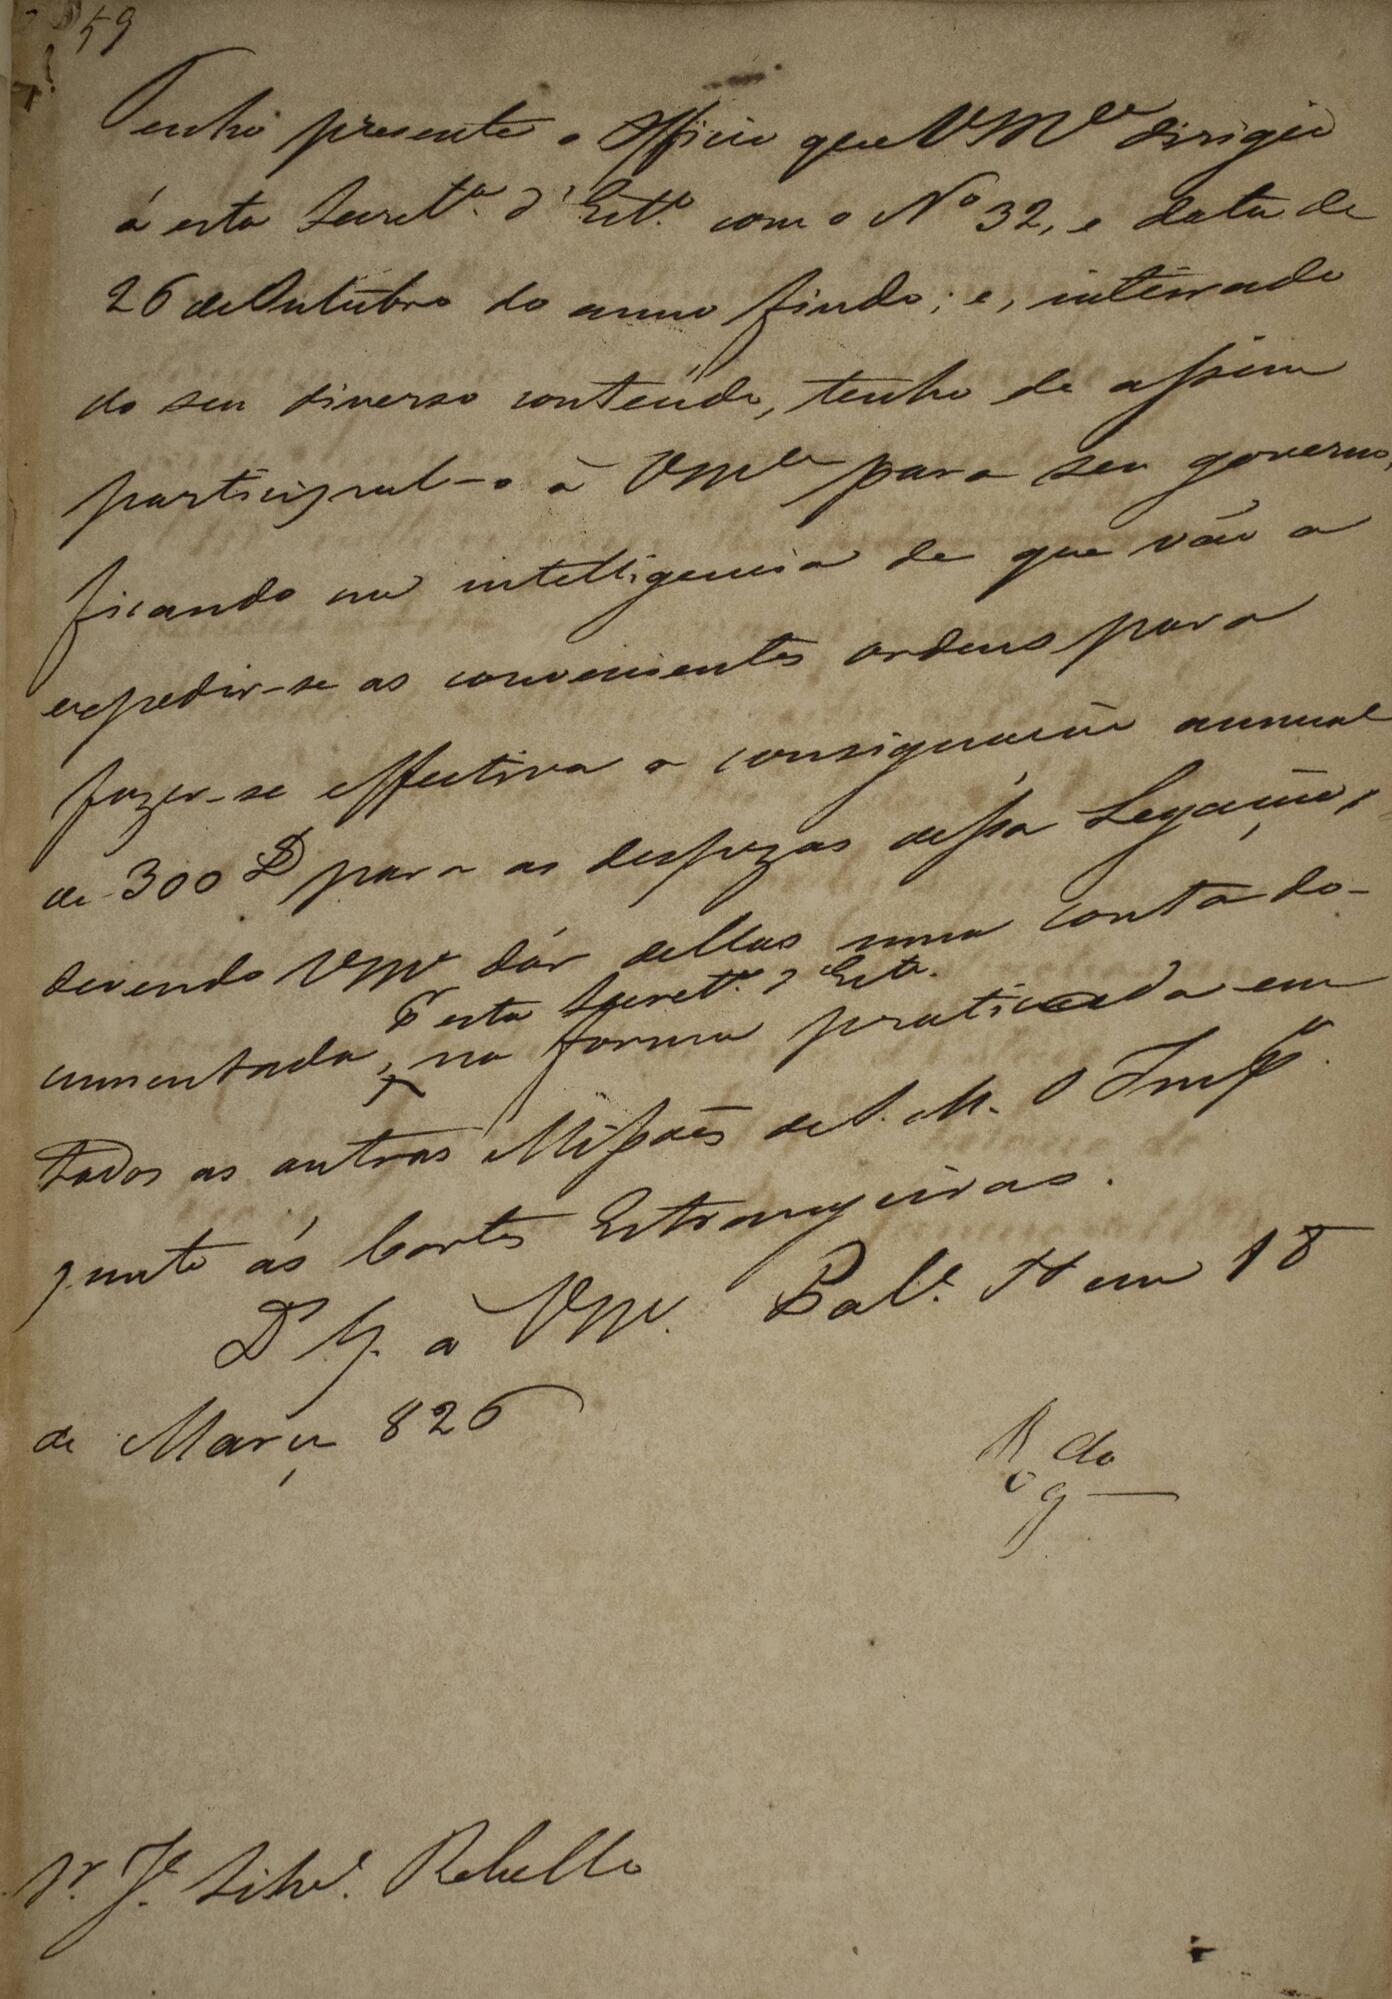 59
Tenho presente o Officio que VMce dirigio
á esta Secret.ª d'Est.º com o Nº 32, e data de
26 de Outubro do anno findo; e, inteirado
do seu diverso conteúdo, tenho de assim
participal-o à VMce para seu governo,
ficando na intelligencia de que vão a
expedir-se as convenientes ordens para
fazer-se effectiva a consignação annual
de 300 £ para as despezas dessa Legação,
devendo VMce dár dellas uma conta do-
á esta Secret.ª d'Est.º
cumentada, na forma praticada em
todas as outras Missões de S. M. O Imp.or
junto ás Cortes Estrangeiras.
D.s G. à VMce. Pal.º em 18
de Março 826
Sr. J.e Silv.e Rebello